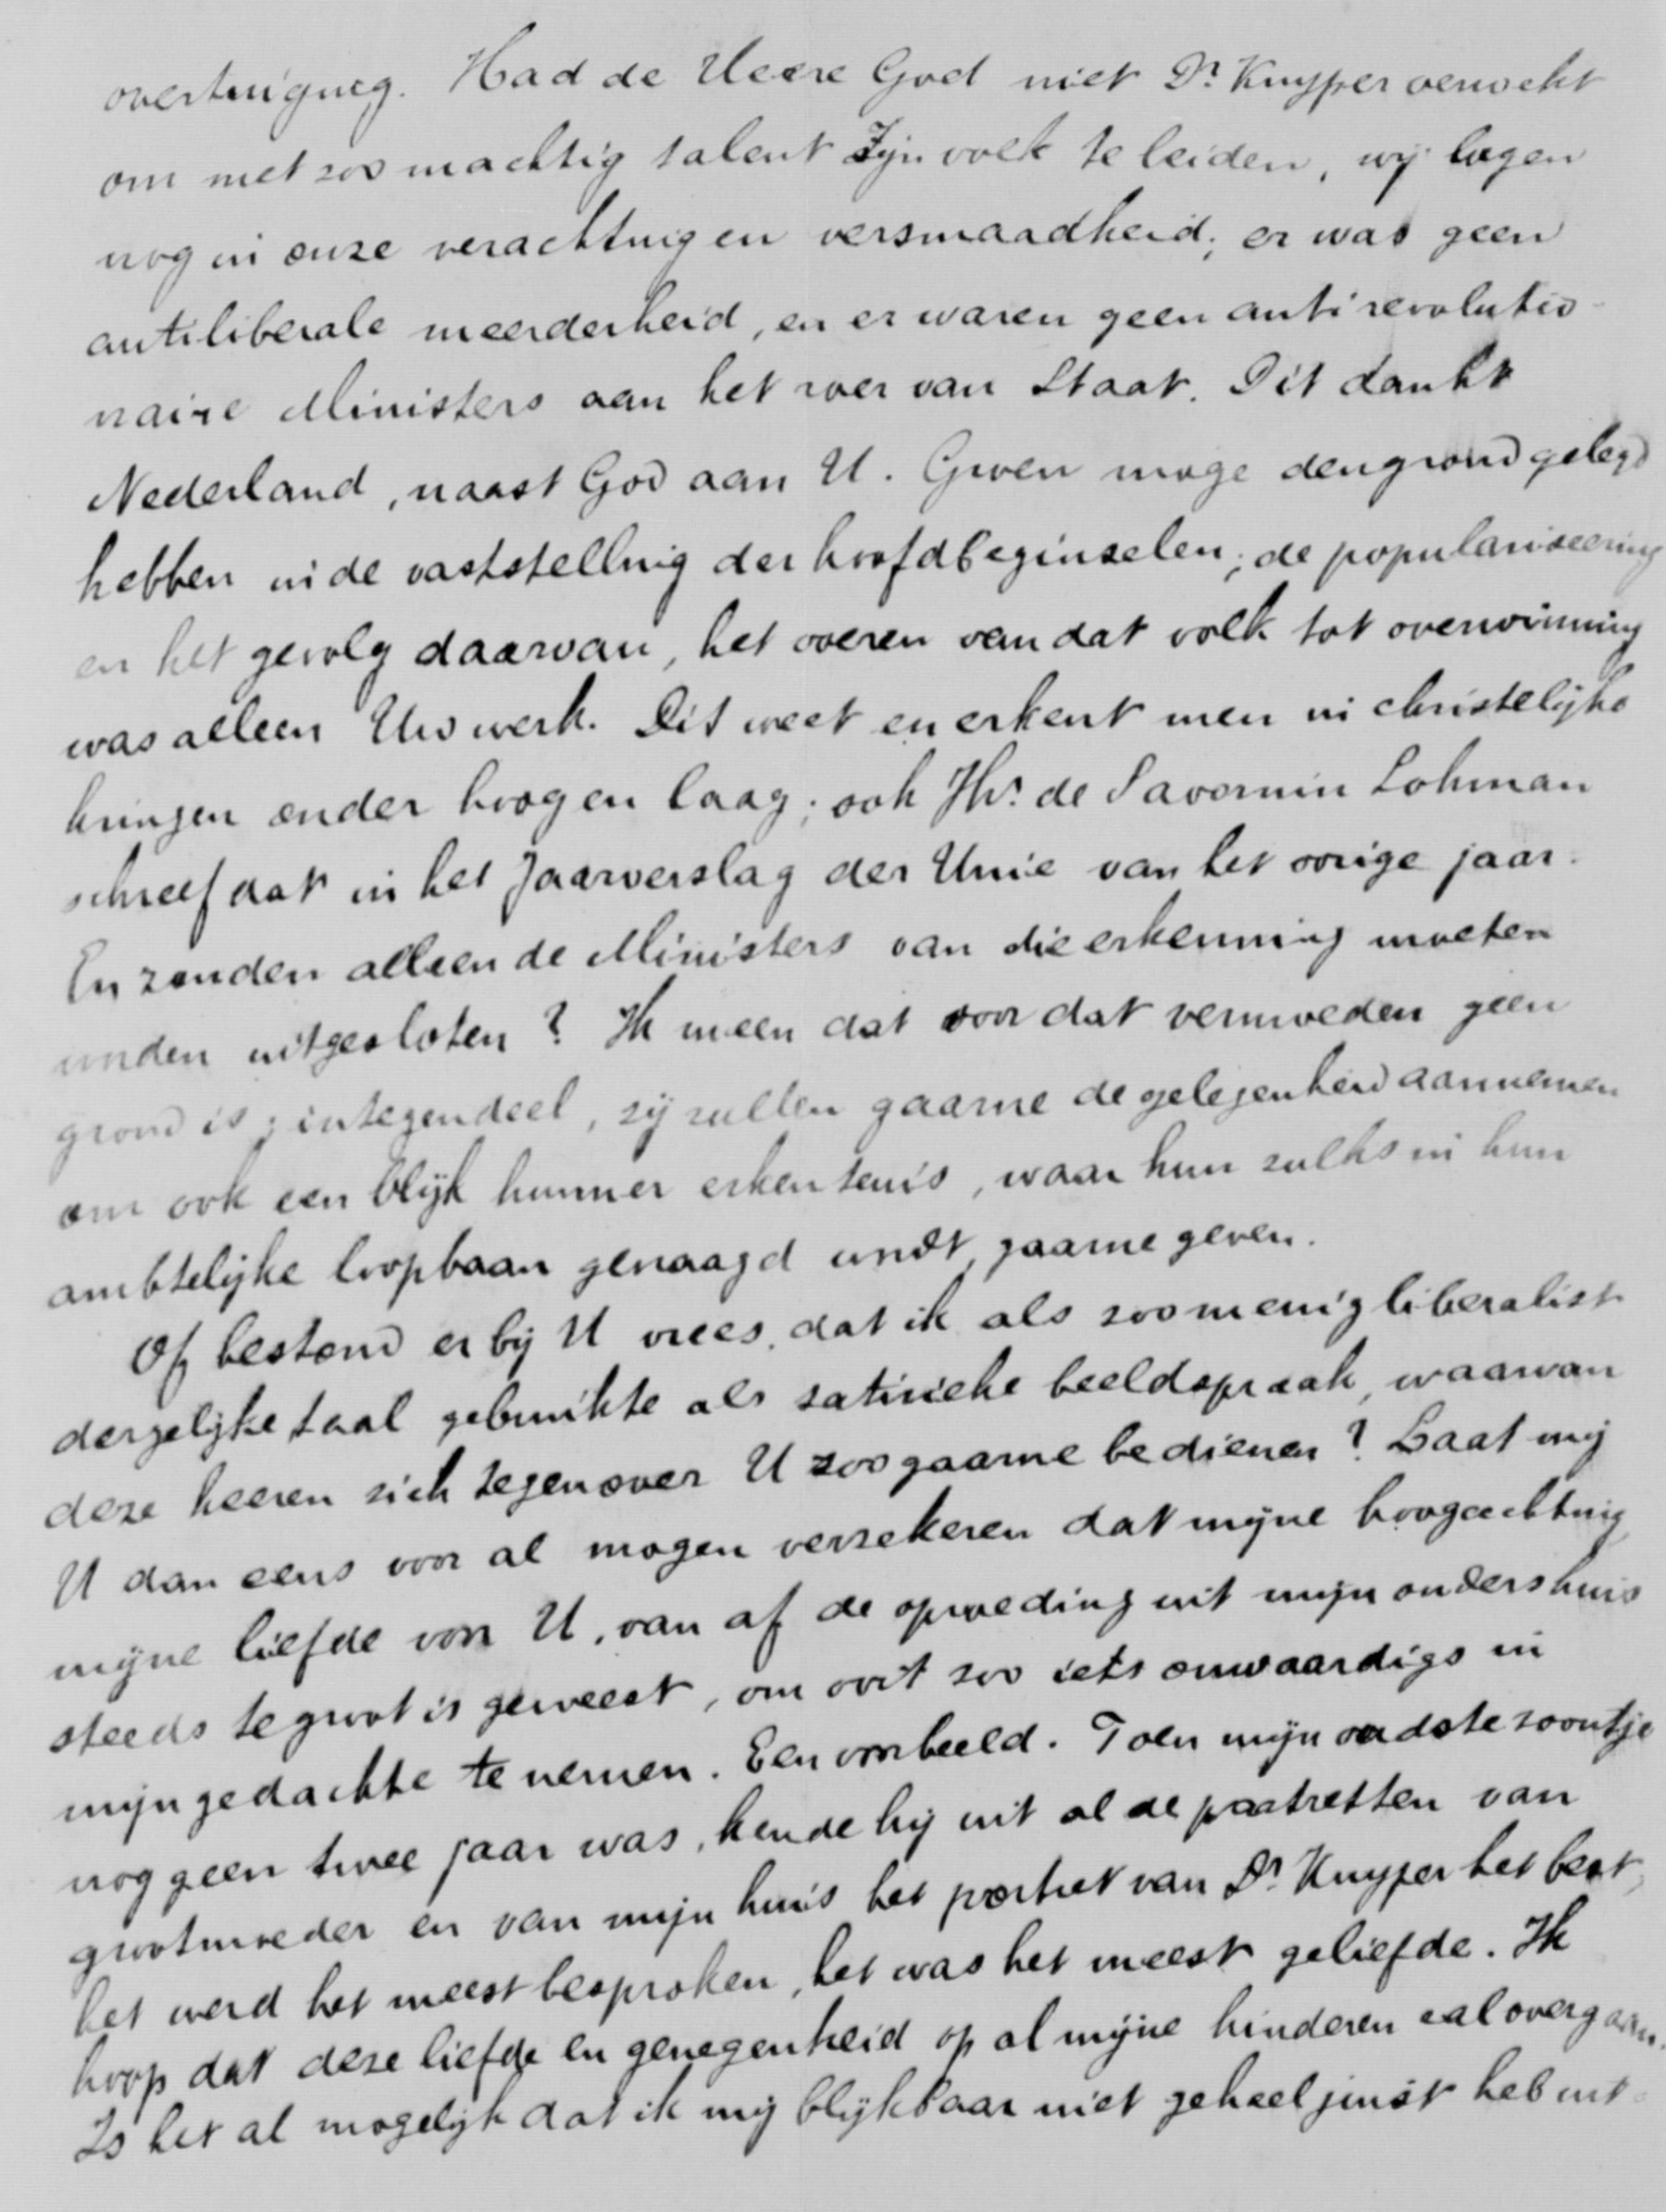 overtuiging. Had de Heere God niet Dr. Kuyper verwekt
om met zoo machtig talent Zijn volk te leiden, wij lagen
nog in onze verachting en versmaadheid; er was geen
antiliberale meerderheid, en er waren geen antirevolutio-
naire Ministers aan het roer van Staat. Dit dankt
Nederland, naast God aan U. Groen moge den grond gelegd
hebben in de vaststelling der hoofdbeginselen; de populariseering
en het gevolg daarvan, het voeren van dat volk tot overwinning
was alleen Uw werk. Dit weet en erkent men in christelijke
kringen onder hoog en laag; ook Jhr. de Savornin Lohman
schreef dat in het Jaarverslag der Unie van het vorige jaar.
En zouden alleen de Ministers van die erkenning moeten
worden uitgesloten? Ik meen dat voor dat vermoeden geen
grond is; integendeel, zij zullen gaarne de gelegenheid aannemen
om ook een blijk hunner erkentenis, waar hun zulks in hun
ambtelijke loopbaan gevraagd wordt, gaarne geven.
Of bestond er bij U vrees, dat ik als zoo menig liberalist
dergelijke taal gebruikte als satirieke beeldspraak, waarvan
deze heeren zich tegenover U zoo gaarne bedienen? Laat mij
U dan eens voor al mogen verzekeren dat mijne hoogachting
mijne liefde voor U, van af de opvoeding uit mijn oudershuis
steeds te groot is geweest, om ooit zoo iets onwaardigs in
mijn gedachte te nemen. Een voorbeeld. Toen mijn oudste zoontje
nog geen twee jaar was, kende hij uit al de portretten van
grootmoeder en van mijn huis het portret van Dr. Kuyper het best,
het werd het meest besproken, het was het meest geliefde. Ik
hoop dat deze liefde en genegenheid op al mijne kinderen zal overgaan.
Is het al mogelijk dat ik mij blijkbaar niet geheel juist heb uit-